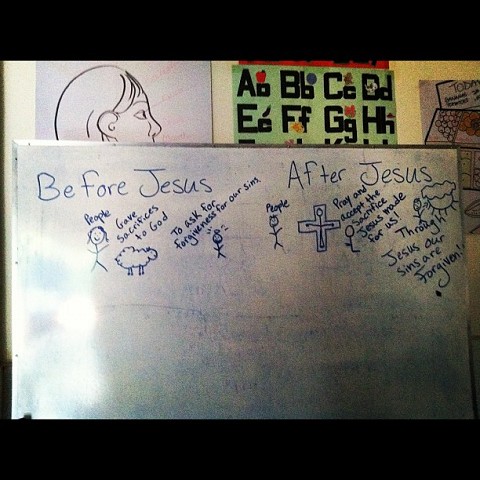 Aa Bb Cc Dd
Ee Ff Gg Hh
Before Jesus
People
Gave
sacrifices
to God
To ask for
forgiveness for our sins
After Jesus
People
Pray and
accept the
Sacrifice
Jesus made
for us!
Through
Jesus our
sins are
forgiven!